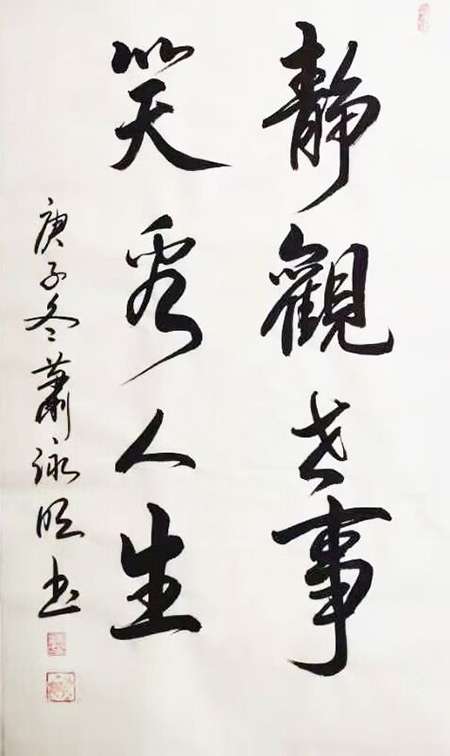 靜觀世事
笑看人生
庚子冬蕭书